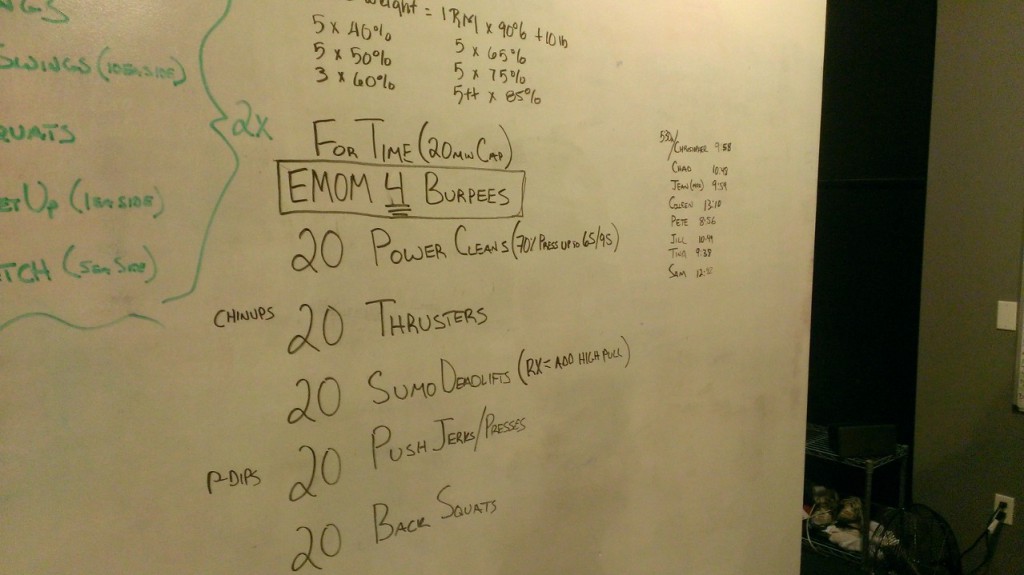 SWINGS (10EA SIDE)
2X
(1EA SIDE)
(5EA SIDE)
= 1RM x 90% + 10lb
5 x 40%
5 x 50%
3 x 60%
5 x 65%
5 x 75%
5++ x 85%
FOR TIME (20 MIN CAP)
EMOM 4 BURPEES
20 POWER CLEANS (70% PRESS UP TO 65/95)
CHINUPS
20 THRUSTERS
20 SUMO DEADLIFTS (RX = ADD HIGH PULL)
20 PUSH JERKS/PRESSES
P-DIPS
20 BACK SQUATS
CHRISTOPHER 9:58
CHAD
JEAN 9:59
COLLEEN 13:10
PETE 8:56
JILL
TINA 9:38
SAM